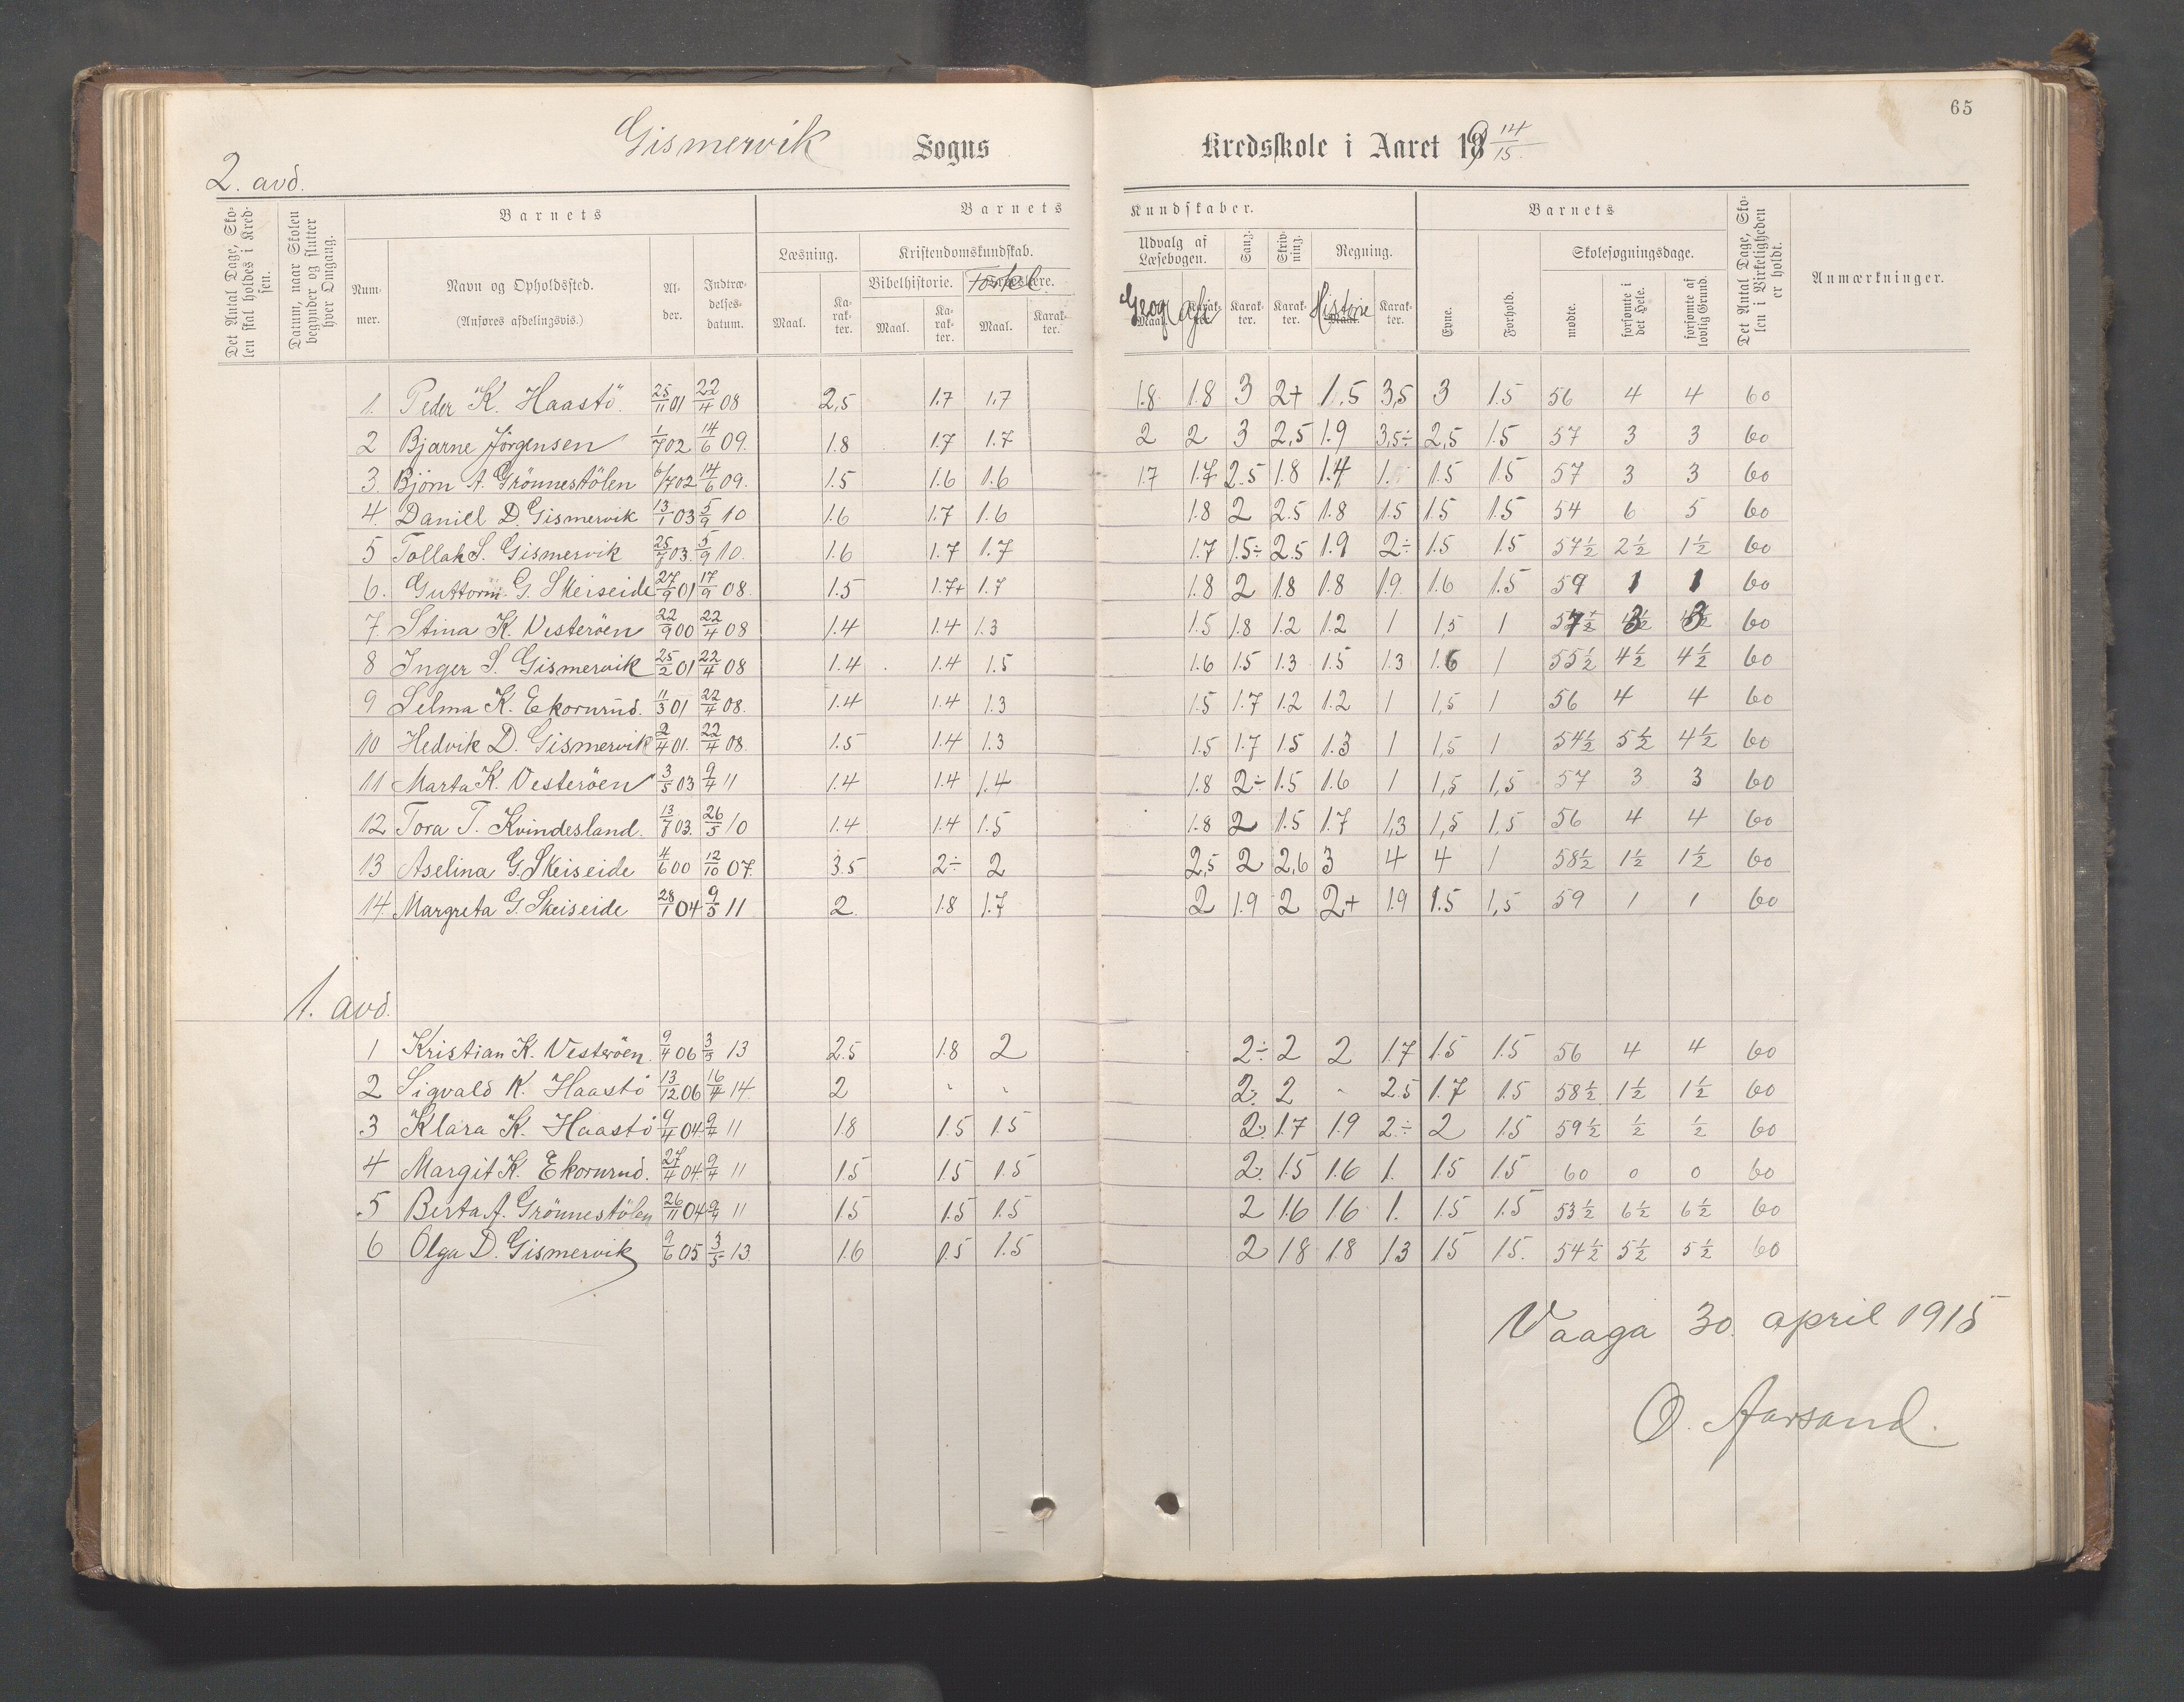 65
Gismervik Sogns Kredsskole i Aaret 1914/15.
2. avd.
Det Antal Dage, Skolen skal holdes i Kredsen.
Datum, naar Skolen begynder og slutter hver Omgang.
Barnets
Barnets Kundskaber.
Barnets
Det Antal Dage, Skolen i Virkeligheden er holdt.
Anmærkninger.
Nummer.
Navn og Opholdssted.
(Anføres afdelingsvis.)
Alder.
Indtrædelsesdatum.
Læsning.
Kristendomskundskab.
Udvalg af Læsebogen.
Sang.
Skrivning.
Regning.
Evne.
Forhold.
Skolesøgningsdage.
Maal.
Karakter.
Bibelhistorie.
Maal.
Karakter.
Maal.
Karakter.
Geografi
Karakter.
Karakter.
Historie
Karakter.
mødte.
forsømte i det Hele.
forsømte af lovlig Grund.
1. Peder K. Haastö. 25/11 01 22/4 08 2,5 1.7 1,7 1.8 1.8 3 2+ 1.5 3,5 3 1.5 56 4 4 60
2 Bjarne Jörgensen 1/7 02 14/6 09. 1.8 1.7 1.7 2 2 3 2,5 1.9 3,5÷ 2,5 1.5 57 3 3 60
3. Bjørn A. Grönnestölen 6/7 02 14/6 09. 1.5 1.6 1.6 1.7 1.7 2.5 1.8 1.4 1. 1.5 1.5 57 3 3 60
4. Daniel D. Gismervik 13/1 03 5/9 10 1.6 1.7 1.6 1.8 2 2.5 1.8 1.5 1.5 1.5 54 6 5 60
5 Tollak S. Gismervik 25/7 03. 5/9 10. 1.6 1.7 1.7 1.7 1.5÷ 2.5 1.9 2÷ 1.5 1.5 57½ 2½ 1½ 60
6. Guttorm G. Skeiseide 27/9 01 17/9 08. 1.5 1.7+ 1.7 1.8 2 1.8 1.8 1.9. 1.6 1.5 59 1 1 60
7 Stina K. Vesteröen 22/9 00 22/4 08 1.4 1.4 1.3 1.5 1.8 1.2 1.2 1 1,5 1 57 3 3 60
8 Inger S. Gismervik 25/2 01 22/4 08 1.4 1.4 1.5 1.6 1.5 1.3 1.5 1.3 1.6 1 55½ 4½ 4½ 60
9 Selma K. Ekornrud. 11/3 01 22/4 08. 1.4 1.4 1.3 1.5 1.7 1.2 1.2 1 1,5 1 56 4 4 60
10 Hedvik D. Gismervik 2/4 01. 22/4 08. 1.5 1.4 1.3 1.5 1.7 1.5 1.3 1 1,5 1 54½ 5½ 4½ 60
11 Marta K. Vesteröen 3/5 03 9/4 11 1.4 1.4 1.4 1.8 2÷ 1.5 1.6 1 1,5 1,5 57 3 3 60
12 Tora T. Kvindesland. 13/7 03. 26/5 10 1.4 1.4 1.5 1.8 2 1.5 1.7 1,3 1,5 1,5 56 4 4 60
13 Aselina G. Skeiseide 4/6 00 12/10 07. 3.5 2÷ 2 2,5 2 2,6 3 4 4 1 58½ 1½ 1½ 60
14. Margreta G. Skeiseide 28/1 04 9/5 11 2. 1.8 1.7 2 1.9 2 2+ 1.9 1.5 1,5 59 1 1 60
1. avd.
1 Kristian K. Vesteröen. 9/4 06 3/5 13 2.5 1.8 2 2÷ 2 2 1.7 1.5 1.5 56 4 4 60
2 Sigvald K. Haastö 13/12 06 16/4 14. 2 - - 2. 2 - 2.5 1.7 1.5 58½ 1½ 1½ 60
3 Klara K. Haastö 9/4 04. 9/4 11 1.8 1.5 1.5 2. 1.7 1.9 2÷ 2 1.5 59½ ½ ½ 60
4 Margit K. Ekornrud. 27/4 04. 9/4 11 1.5 1.5 1.5 2. 1.5 1.6 1. 1.5 1.5 60 0 0 60
5 Berta A. Grönnestölen 26/11 04 9/4 11 1.5 1.5 1.5 2 1.6 1.6 1. 1.5 1.5 53½ 6½ 6½ 60
6 Olga D. Gismervik 9/6 05. 3/5 13. 1.6 1.5 1.5 2 1.8 1.8 1.3 1.5 1.5. 54½ 5½ 5½ 60
Vaaga 30. april 1915
O. Aarsand.